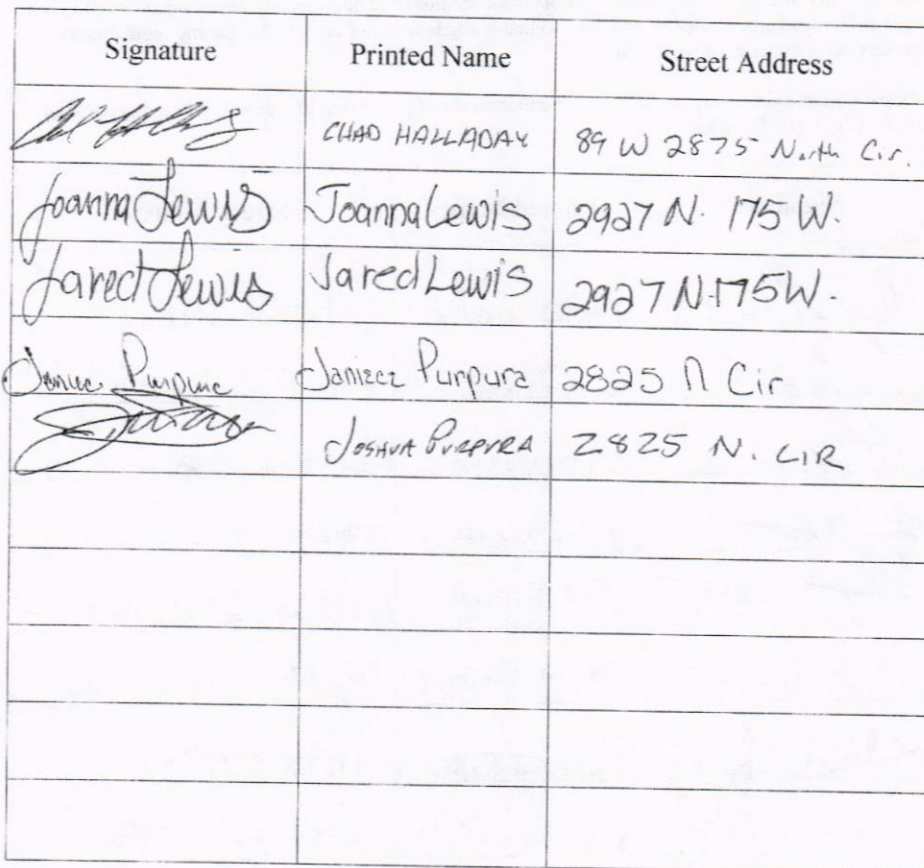 Signature Printed Name Street Address
CHAD HALLADAY 89 W 2875 North Cir.
Joanna Lewis Joanna Lewis 2927 N. 175 W.
Jared Lewis Jared Lewis 2927 N. 175 W.
Purpura 2825 N Cir
JOSHUA PURPURA 2825 N. CIR